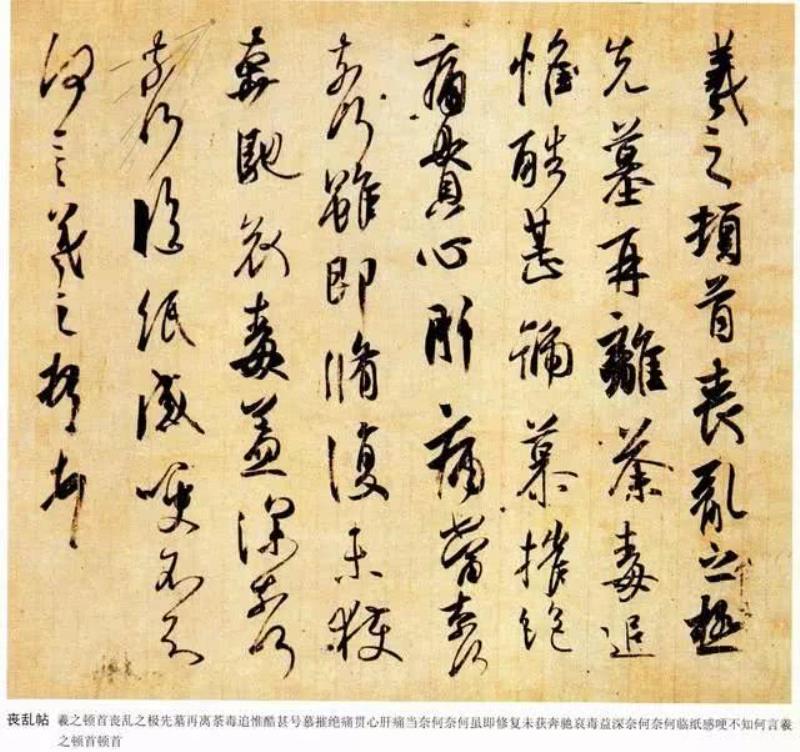 羲之頓首喪亂之極
先墓再離荼毒追
惟酷甚號慕摧絕
痛貫心肝痛當奈何
奈何雖即脩復未獲
奔馳哀毒益深奈何
奈何臨紙感哽不知
何言羲之頓首頓首
丧乱帖 羲之顿首丧乱之极先墓再离荼毒追惟酷甚号慕摧绝痛贯心肝痛当奈何奈何虽即修复未获奔驰哀毒益深奈何奈何临纸感哽不知何言羲
之顿首顿首